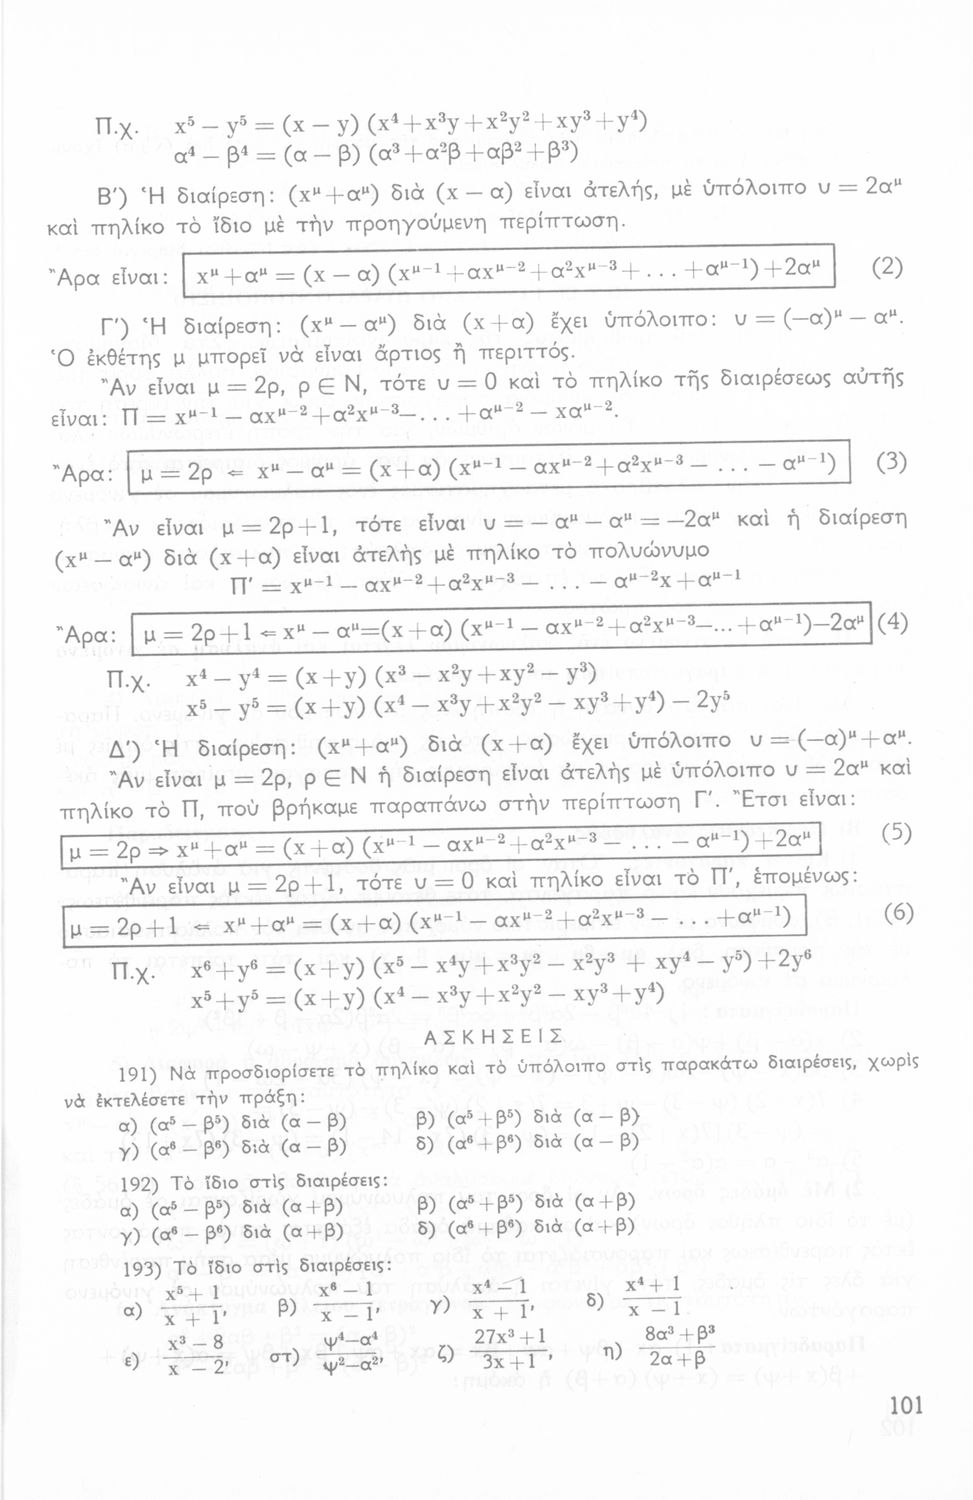 Π.χ. x⁵ — y⁵ = (x — y) (x⁴ + x³y + x²y² + xy³ + y⁴)
α⁴ — β⁴ = (α — β) (α³ + α²β + αβ² + β³)
Β′) Ἡ διαίρεση: (x^μ + α^μ) διὰ (x — α) εἶναι ἀτελής, μὲ ὑπόλοιπο υ = 2α^μ
καὶ πηλίκο τὸ ἴδιο μὲ τὴν προηγούμενη περίπτωση.
Ἄρα εἶναι: x^μ + α^μ = (x — α) (x^μ⁻¹ + αx^μ⁻² + α²x^μ⁻³ + . . . + α^μ⁻¹) + 2α^μ (2)
Γ′) Ἡ διαίρεση: (x^μ — α^μ) διὰ (x + α) ἔχει ὑπόλοιπο: υ = (—α)^μ — α^μ.
Ὁ ἐκθέτης μ μπορεῖ νὰ εἶναι ἄρτιος ἢ περιττός.
Ἂν εἶναι μ = 2ρ, ρ ∈ Ν, τότε υ = 0 καὶ τὸ πηλίκο τῆς διαιρέσεως αὐτῆς
εἶναι: Π = x^μ⁻¹ — αx^μ⁻² + α²x^μ⁻³ —. . . + α^μ⁻² — xα^μ⁻².
Ἄρα: μ = 2ρ ⇐ x^μ — α^μ = (x + α) (x^μ⁻¹ — αx^μ⁻² + α²x^μ⁻³ — . . . — α^μ⁻¹) (3)
Ἂν εἶναι μ = 2ρ + 1, τότε εἶναι υ = — α^μ — α^μ = —2α^μ καὶ ἡ διαίρεση
(x^μ — α^μ) διὰ (x + α) εἶναι ἀτελὴς μὲ πηλίκο τὸ πολυώνυμο
Π′ = x^μ⁻¹ — αx^μ⁻² + α²x^μ⁻³ — . . . — α^μ⁻²x + α^μ⁻¹
Ἄρα: μ = 2ρ + 1 ⇐ x^μ — α^μ = (x + α) (x^μ⁻¹ — αx^μ⁻² + α²x^μ⁻³ —... + α^μ⁻¹) — 2α^μ (4)
Π.χ. x⁴ — y⁴ = (x + y) (x³ — x²y + xy² — y³)
x⁵ — y⁵ = (x + y) (x⁴ — x³y + x²y² — xy³ + y⁴) — 2y⁵
Δ′) Ἡ διαίρεση: (x^μ + α^μ) διὰ (x + α) ἔχει ὑπόλοιπο υ = (—α)^μ + α^μ.
Ἂν εἶναι μ = 2ρ, ρ ∈ Ν ἡ διαίρεση εἶναι ἀτελὴς μὲ ὑπόλοιπο υ = 2α^μ καὶ
πηλίκο τὸ Π, ποὺ βρήκαμε παραπάνω στὴν περίπτωση Γ′. Ἔτσι εἶναι:
μ = 2ρ ⇒ x^μ + α^μ = (x + α) (x^μ⁻¹ — αx^μ⁻² + α²x^μ⁻³ — . . . — α^μ⁻¹) + 2α^μ (5)
Ἂν εἶναι μ = 2ρ + 1, τότε υ = 0 καὶ πηλίκο εἶναι τὸ Π′, ἑπομένως:
μ = 2ρ + 1 ⇐ x^μ + α^μ = (x + α) (x^μ⁻¹ — αx^μ⁻² + α²x^μ⁻³ — . . . + α^μ⁻¹) (6)
Π.χ. x⁶ + y⁶ = (x + y) (x⁵ — x⁴y + x³y² — x²y³ + xy⁴ — y⁵) + 2y⁶
x⁵ + y⁵ = (x + y) (x⁴ — x³y + x²y² — xy³ + y⁴)
ΑΣΚΗΣΕΙΣ
191) Νὰ προσδιορίσετε τὸ πηλίκο καὶ τὸ ὑπόλοιπο στὶς παρακάτω διαιρέσεις, χωρὶς
νὰ ἐκτελέσετε τὴν πράξη:
α) (α⁵ — β⁵) διὰ (α — β) β) (α⁵ + β⁵) διὰ (α — β)
γ) (α⁶ — β⁶) διὰ (α — β) δ) (α⁶ + β⁶) διὰ (α — β)
192) Τὸ ἴδιο στὶς διαιρέσεις:
α) (α⁵ — β⁵) διὰ (α + β) β) (α⁵ + β⁵) διὰ (α + β)
γ) (α⁶ — β⁶) διὰ (α + β) δ) (α⁶ + β⁶) διὰ (α + β)
193) Τὸ ἴδιο στὶς διαιρέσεις:
α) (x⁵ + 1)/(x + 1), β) (x⁶ — 1)/(x — 1), γ) (x⁴ — 1)/(x + 1), δ) (x⁴ + 1)/(x — 1)
ε) (x³ — 8)/(x — 2), στ) (ψ⁴—α⁴)/(ψ²—α²), ζ) (27x³ + 1)/(3x + 1), η) (8α³ + β³)/(2α + β)
101